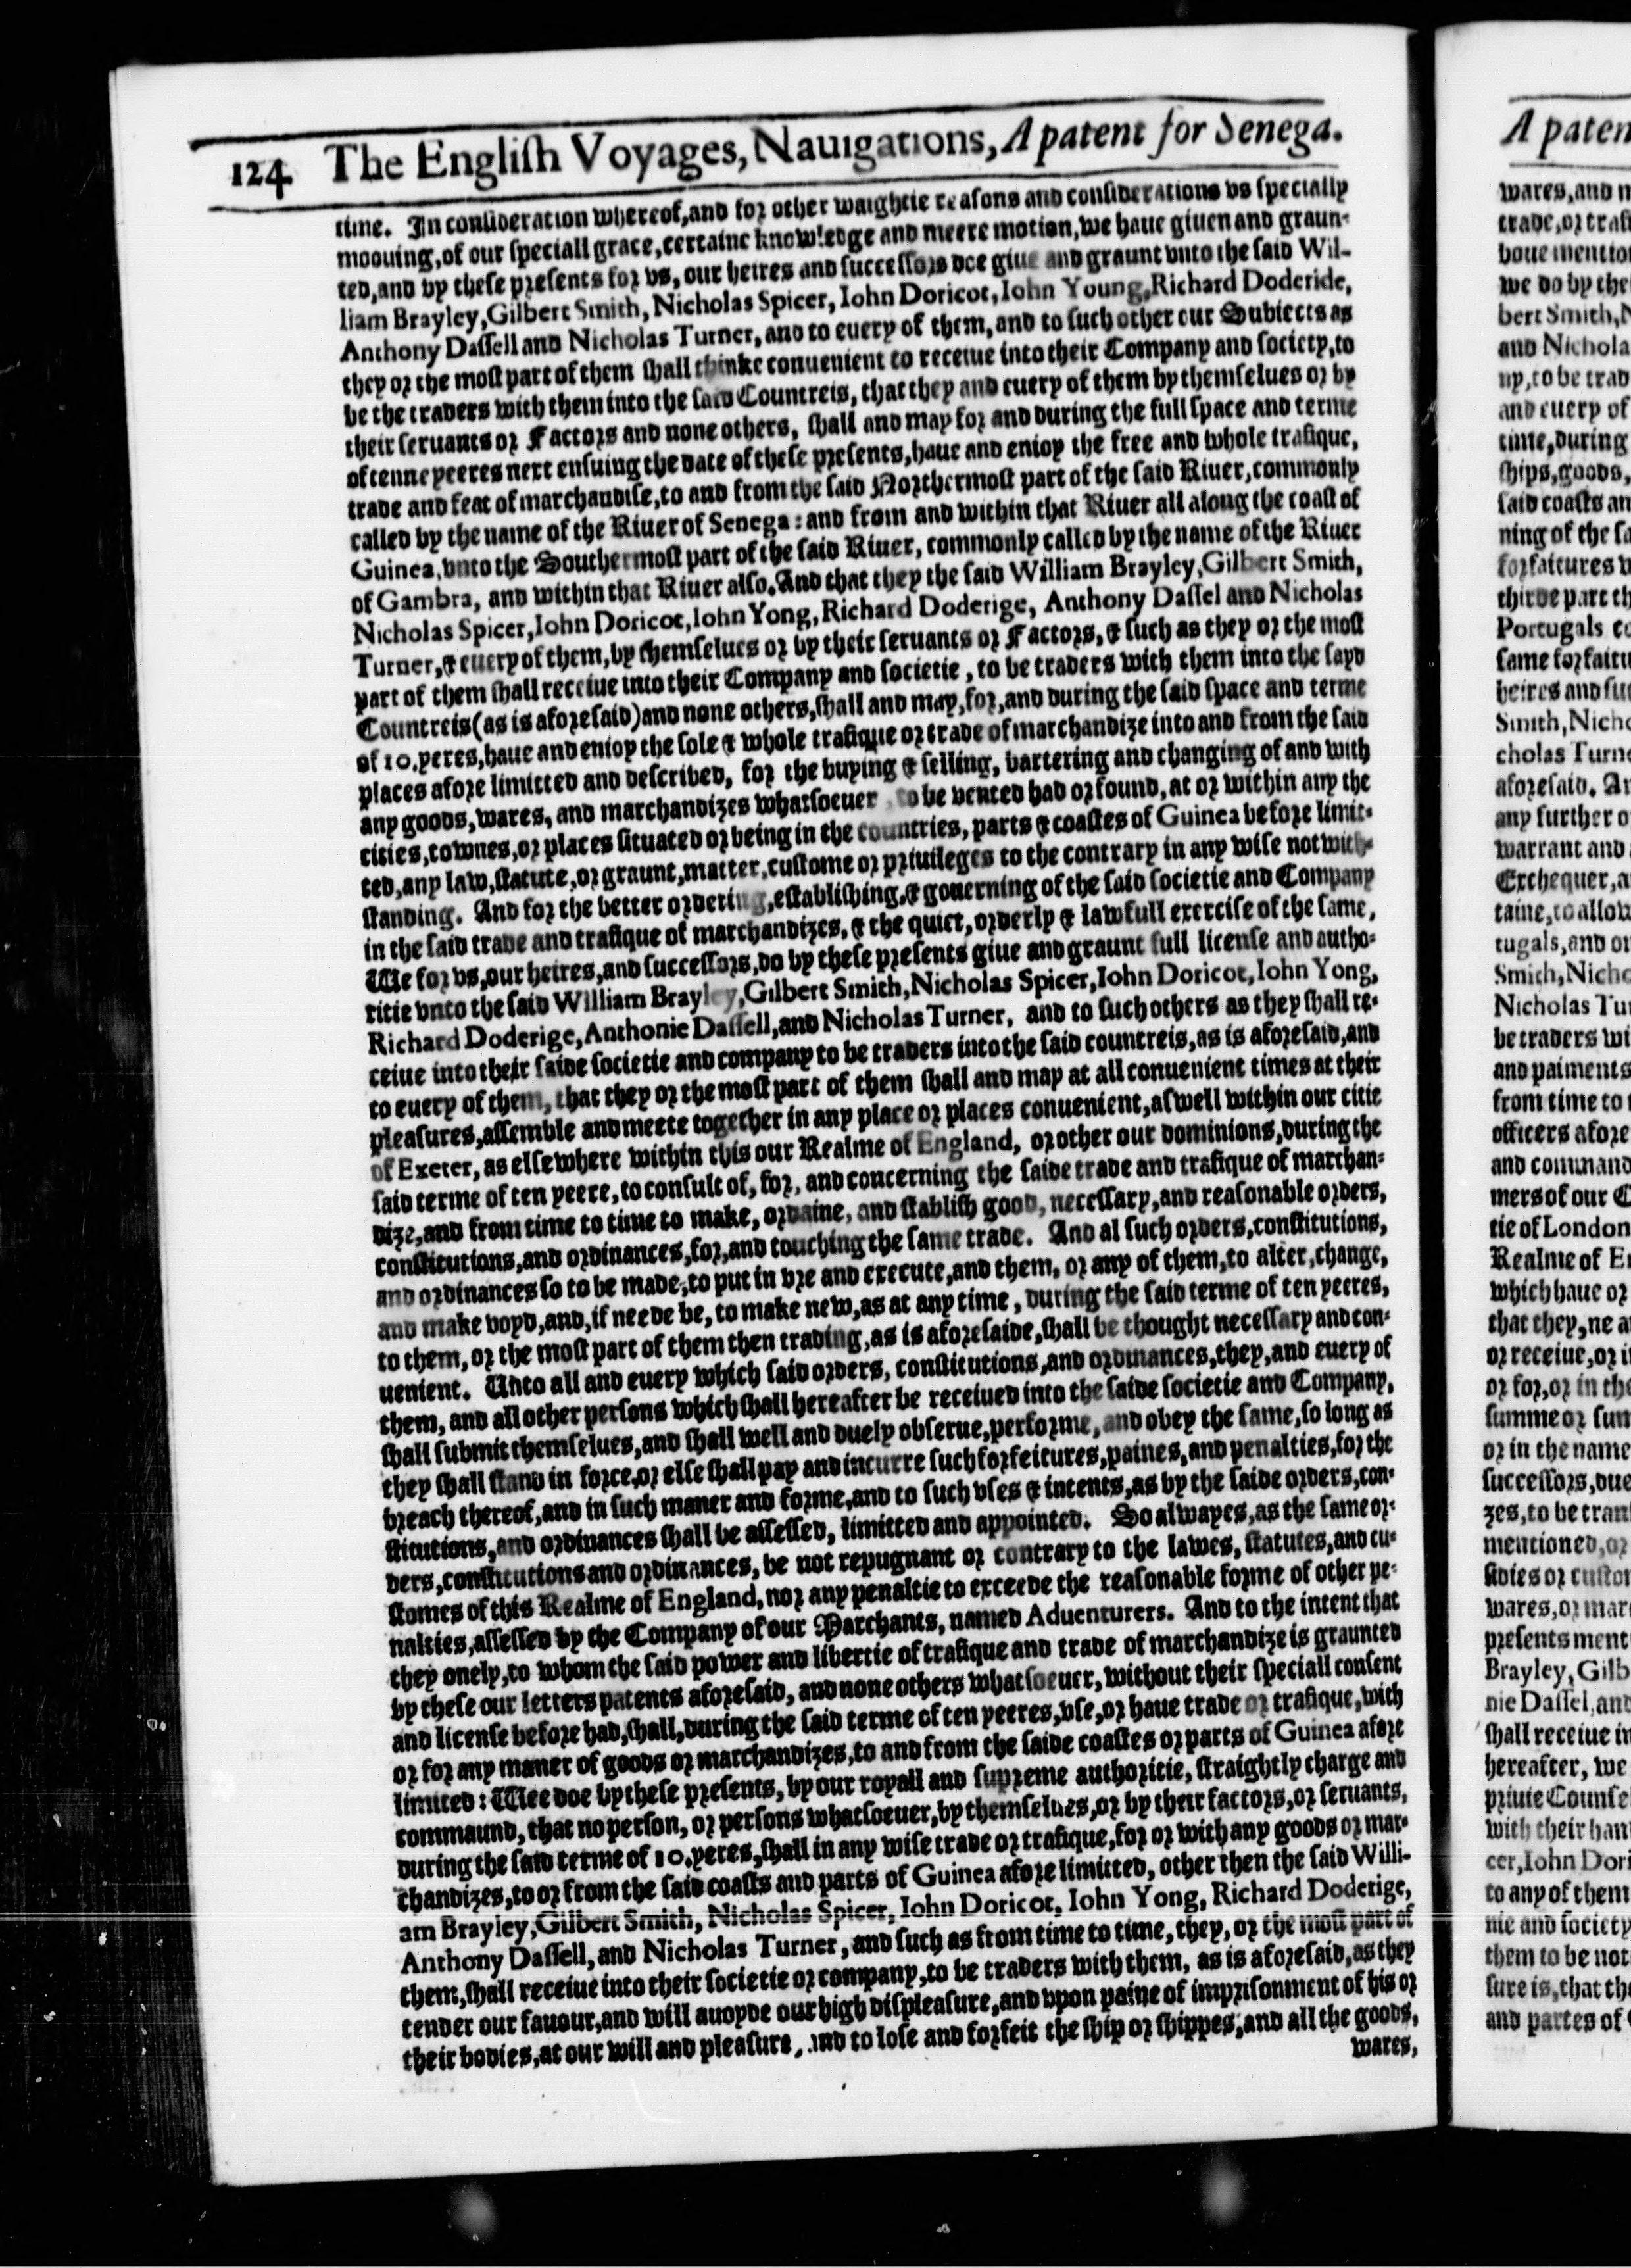 124 The Engliſh Voyages, Nauigations, A patent for Senega.
time. In conſideration whereof, and for other waightie reaſons and conſiderations vs ſpecially
moouing, of our ſpeciall grace, certaine knowledge and meere motion, we haue giuen and graun-
ted, and by theſe preſents for vs, our heires and ſucceſſors doe giue and graunt vnto the ſaid Wil-
liam Brayley, Gilbert Smith, Nicholas Spicer, Iohn Doricot, Iohn Young, Richard Doderide,
Anthony Daſſell and Nicholas Turner, and to euery of them, and to ſuch other our Subiects as
they or the moſt part of them ſhall thinke conuenient to receiue into their Company and ſociety, to
be the traders with them into the ſaid Countreis, that they and euery of them by themſelues or by
their ſeruants or Factors and none others, ſhall and may for and during the full ſpace and terme
of tenne yeeres next enſuing the date of theſe preſents, haue and enioy the free and whole trafique,
trade and feat of marchandiſe, to and from the ſaid Northermoſt part of the ſaid Riuer, commonly
called by the name of the Riuer of Senega: and from and within that Riuer all along the coaſt of
Guinea, vnto the Southermoſt part of the ſaid Riuer, commonly called by the name of the Riuer
of Gambra, and within that Riuer alſo. And that they the ſaid William Brayley, Gilbert Smith,
Nicholas Spicer, Iohn Doricot, Iohn Yong, Richard Doderige, Anthony Daſſel and Nicholas
Turner, & euery of them, by themſelues or by their ſeruants or Factors, & ſuch as they or the moſt
part of them ſhall receiue into their Company and ſocietie, to be traders with them into the ſayd
Countreis (as is aforeſaid) and none others, ſhall and may, for, and during the ſaid ſpace and terme
of 10. yeres, haue and enioy the ſole & whole trafique or trade of marchandize into and from the ſaid
places afore limitted and deſcribed, for the buying & ſelling, bartering and changing of and with
any goods, wares, and marchandizes whatſoeuer, to be vented had or found, at or within any the
cities, townes, or places ſituated or being in the countries, parts & coaſtes of Guinea before limit-
ted, any law, ſtatute, or graunt, matter, cuſtome or priuileges to the contrary in any wiſe notwith-
ſtanding. And for the better ordering, eſtabliſhing, & gouerning of the ſaid ſocietie and Company
in the ſaid trade and trafique of marchandizes, & the quiet, orderly & lawfull exerciſe of the ſame,
We for vs, our heires, and ſucceſſors, do by theſe preſents giue and graunt full licenſe and autho-
ritie vnto the ſaid William Brayley, Gilbert Smith, Nicholas Spicer, Iohn Doricot, Iohn Yong,
Richard Doderige, Anthonie Daſſell, and Nicholas Turner, and to ſuch others as they ſhall re-
ceiue into their ſaide ſocietie and company to be traders into the ſaid countreis, as is aforeſaid, and
to euery of them, that they or the moſt part of them ſhall and may at all conuenient times at their
pleaſures, aſſemble and meete together in any place or places conuenient, aſwell within our citie
of Exeter, as elſewhere within this our Realme of England, or other our dominions, during the
ſaid terme of ten yeere, to conſult of, for, and concerning the ſaide trade and trafique of marchan-
dize, and from time to time to make, ordaine, and ſtabliſh good, neceſſary, and reaſonable orders,
conſtitutions, and ordinances, for, and touching the ſame trade. And al ſuch orders, conſtitutions,
and ordinances ſo to be made, to put in vre and execute, and them, or any of them, to alter, change,
and make voyd, and, if neede be, to make new, as at any time, during the ſaid terme of ten yeeres,
to them, or the moſt part of them then trading, as is aforeſaide, ſhall be thought neceſſary and con-
uenient. Unto all and euery which ſaid orders, conſtitutions, and ordinances, they, and euery of
them, and all other perſons which ſhall hereafter be receiued into the ſaide ſocietie and Company,
ſhall ſubmit themſelues, and ſhall well and duely obſerue, performe, and obey the ſame, ſo long as
they ſhall ſtand in force, or elſe ſhall pay and incurre ſuch forfeitures, paines, and penalties, for the
breach thereof, and in ſuch maner and forme, and to ſuch vſes & intents, as by the ſaide orders, con-
ſtitutions, and ordinances ſhall be aſſeſſed, limitted and appointed. So alwayes, as the ſame or-
ders, conſtitutions and ordinances, be not repugnant or contrary to the lawes, ſtatutes, and cu-
ſtomes of this Realme of England, nor any penaltie to exceede the reaſonable forme of other pe-
nalties, aſſeſſed by the Company of our Marchants, named Aduenturers. And to the intent that
they onely, to whom the ſaid power and libertie of trafique and trade of marchandize is graunted
by theſe our letters patents aforeſaid, and none others whatſoeuer, without their ſpeciall conſent
and licenſe before had, ſhall, during the ſaid terme of ten yeeres, vſe, or haue trade or trafique, with
or for any maner of goods or marchandizes, to and from the ſaide coaſtes or parts of Guinea afore
limited: Wee doe by theſe preſents, by our royall and ſupreme authoritie, ſtraightly charge and
commaund, that no perſon, or perſons whatſoeuer, by themſelues, or by their factors, or ſeruants,
during the ſaid terme of 10. yeres, ſhall in any wiſe trade or trafique, for or with any goods or mar-
chandizes, to or from the ſaid coaſts and parts of Guinea afore limitted, other then the ſaid Willi-
am Brayley, Gilbert Smith, Nicholas Spicer, Iohn Doricot, Iohn Yong, Richard Doderige,
Anthony Daſſell, and Nicholas Turner, and ſuch as from time to time, they, or the moſt part of
them, ſhall receiue into their ſocietie or company, to be traders with them, as is aforeſaid, as they
tender our fauour, and will auoyde our high diſpleaſure, and vpon paine of impriſonment of his or
their bodies, at our will and pleaſure, and to loſe and forfeit the ſhip or ſhippes, and all the goods,
wares,
A paten
wares, and m
trade, or traf
boue mentio
we do by the
bert Smith, N
and Nichola
up, to be trad
and euery of
time, during
ſhips, goods,
ſaid coaſts an
ning of the ſa
forfaitures w
thirde part th
Portugals co
ſame forfaitu
heires and ſuc
Smith, Nicho
cholas Turne
aforeſaid. An
any further o
warrant and
Exchequer, a
taine, to allow
tugals, and o
Smith, Nicho
Nicholas Tur
be traders wi
and paiments
from time to
officers afore
and command
mers of our C
tie of London
Realme of En
which haue or
that they, ne a
or receiue, or i
or for, or in the
ſumme or ſum
or in the name
ſucceſſors, due
zes, to be tranſ
mentioned, or
ſidies or cuſtom
wares, or mar
preſents ment
Brayley, Gilb
nie Daſſel, and
ſhall receiue in
hereafter, we
priuie Counſel
with their han
cer, Iohn Dori
to any of them
nie and ſociety
them to be not
ſure is, that th
and partes of G